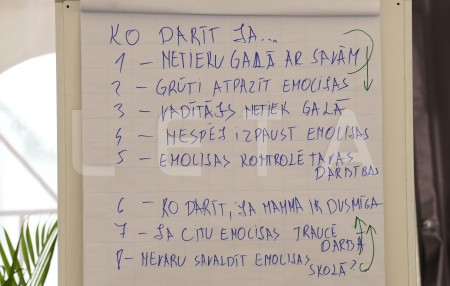 KO DARĪT JA...
1 - NETIEKU GALĀ AR SAVĀM
2 - GRŪTI ATPAZĪT EMOCIJAS
3 - VADĪTĀJS NETIEK GALĀ
4 - NESPĒJ IZPAUST EMOCIJAS
5 - EMOCIJAS KONTROLĒ TAVAS
DARBĪBAS
6 - KO DARĪT, JA MAMMA IR DUSMĪGA
7 - JA CITU EMOCIJAS TRAUCĒ
DARBĀ
8 - NEVARU SAVALDĪT EMOCIJAS
SKOLĀ?
LETA